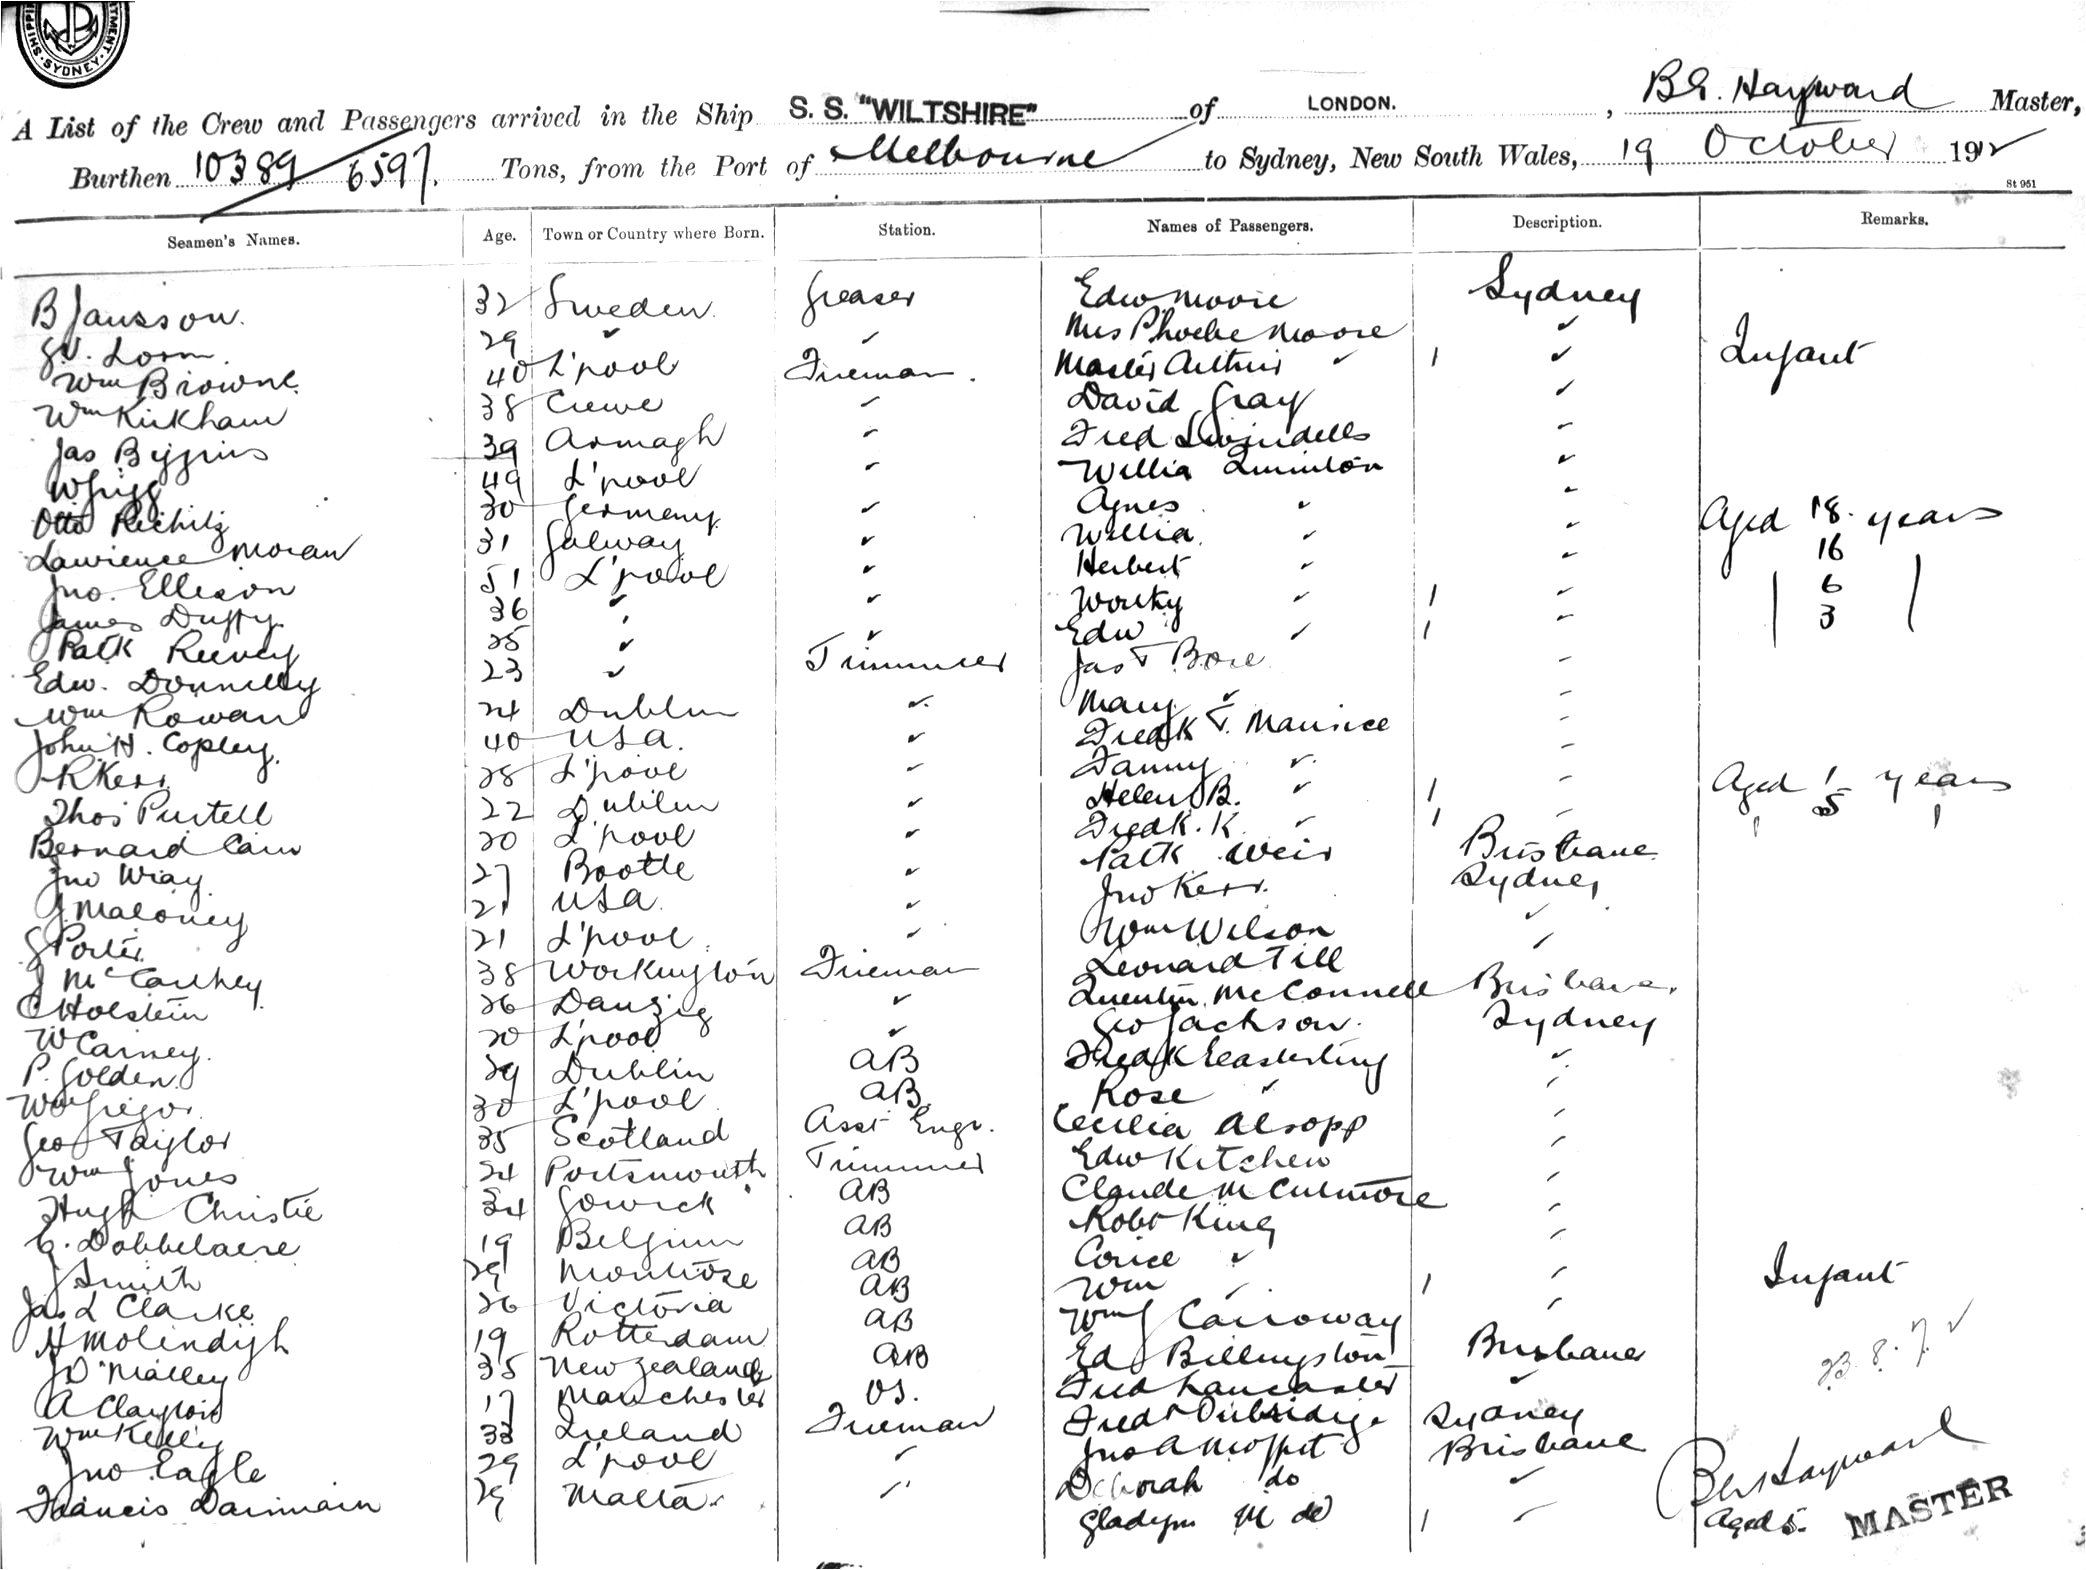 SHIPPING DEPARTMENT. SYDNEY.
A List of the Crew and Passengers arrived in the Ship S. S. "WILTSHIRE" of LONDON. , B.G. Hayward Master,
Burthen 10389 6597. Tons, from the Port of Melbourne to Sydney, New South Wales, 19 October 1912
St 951
Seamen's Names. Age. Town or Country where Born. Station. Names of Passengers. Description. Remarks.
B Jansson. 32 Sweden. Greaser Edw Moore Sydney
29 " " Mrs Phoebe Moore "
Wm Browne. 40 L'pool Fireman. Master Arthur " 1 " Infant
Wm Kirkham 38 Crewe " David Gray "
Jas Biggins 39 Armagh " Fred Swindells "
W Grigg 49 L'pool " Willia Quinton "
Otto 30 Germany " Agnes " "
Lawrence Moran 31 Galway " Willia. " " Aged 18 years
Jno. Ellison 51 L'pool " Herbert " " 16
James Duffy 36 " " " 1 " 6
Patk Reeney 25 " " Edw " 1 " 3
Edw. Donnelly 23 " Trimmer Jas T Bore "
Wm Rowan 24 Dublin " Mary " "
John H. Copley. 40 USA. " Fredk T. Maurice "
R Kerr 28 L'pool " Fanny " "
Thos Purtell 22 Dublin " Helen B. " 1 " Aged 1 years
Bernard Cain 20 L'pool " Fredk. K. " 1 " 5
Jno Wray 27 Bootle " Patk Weir Brisbane
J. Maloney 21 USA. " Jno Kerr. Sydney
G Porter. 21 L'pool. " Wm Wilson "
J McCarthey 38 Workington Fireman Leonard Tell "
C Holstein 26 Danzig " Quentin McConnell Brisbane.
W Carney. 20 L'pool " Geo Jackson. Sydney
P. Golden. 29 Dublin AB Fredk Easterling "
Wm Gregor. 30 L'pool AB Rose " "
Geo Taylor 35 Scotland Asst Engr. Cecilia Alsopp "
Wm Jones 24 Portsmouth Trimmer Edw Kitchen "
Hugh Christie 34 AB Claude McCulmore "
G. Dobbelaere 19 Belgium AB Robt King "
J Smith 29 Montrose AB "
Jas L Clarke 26 Victoria AB Wm " 1 " Infant
H Molendijh 19 Rotterdam AB Wm J Carroway "
J O'Malley 35 New Zealand AB Ed Billington Brisbane
A Clayton 17 Manchester OS. Fred Lancaster "
Wm Kelly 33 Ireland Fireman Fredk Sydney
Jno Eagle 29 L'pool " Jno A Moffet Brisbane
Francis Darmain 29 Malta. " Deborah do "
Gladym M do 1 " Aged 5.
23.8.7 ✓
B G Hayward
MASTER